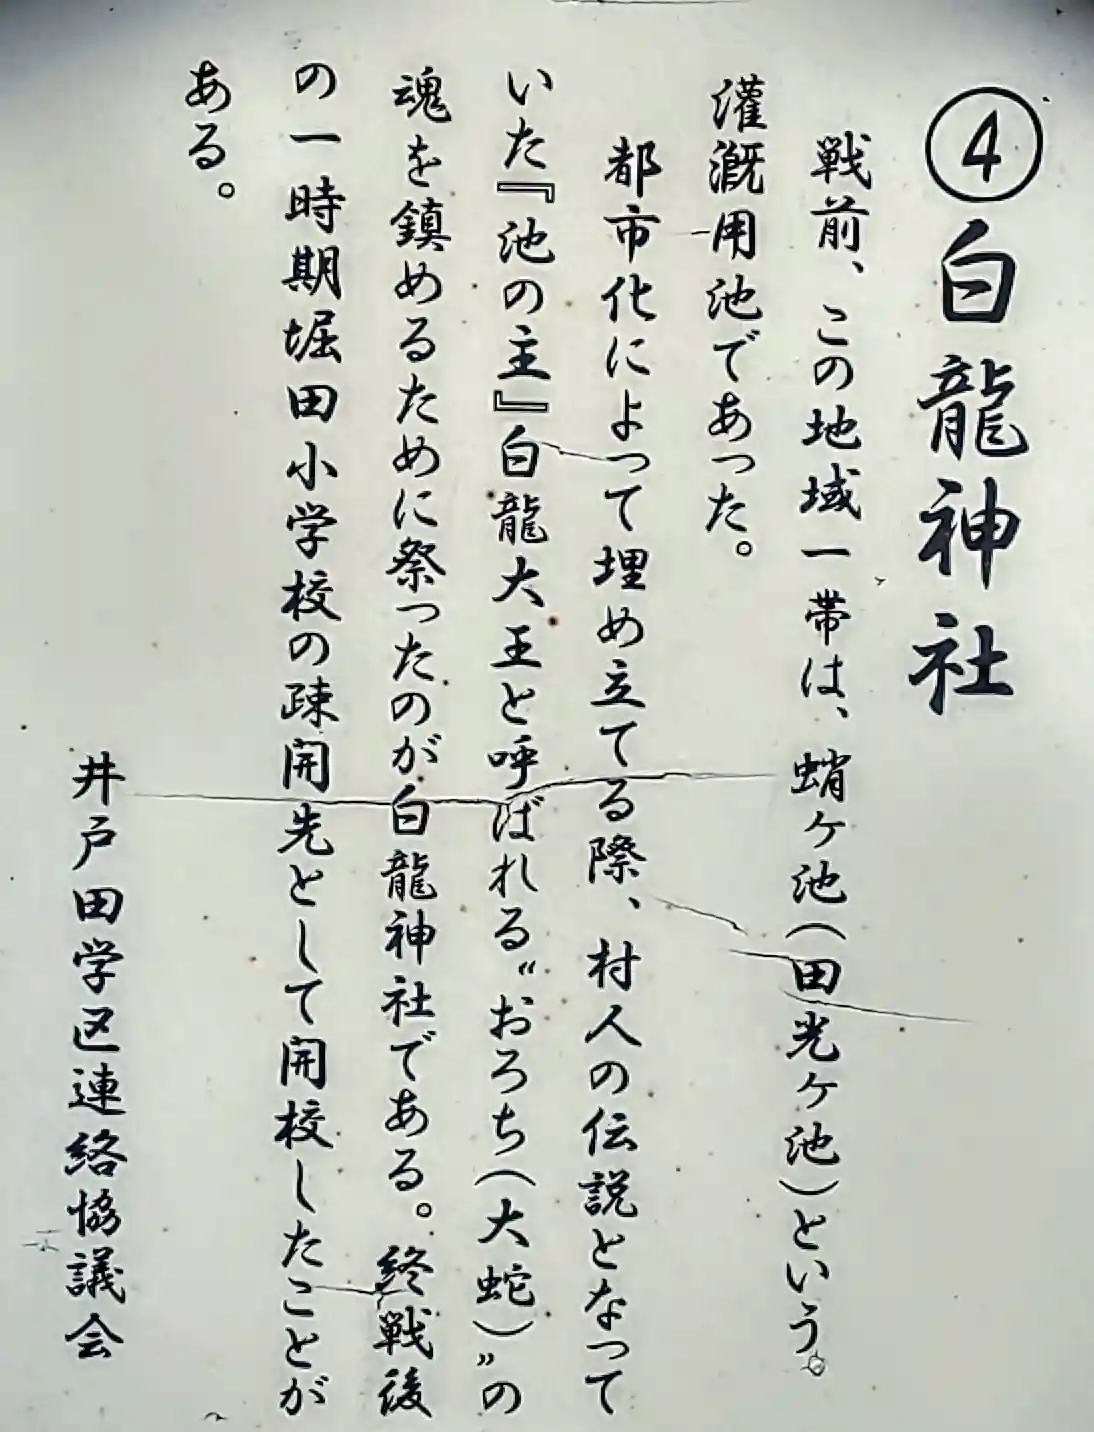 ④白龍神社
戦前、この地域一帯は、蛸ヶ池(田光ヶ池)という。
灌漑用池であった。
都市化によって埋め立てる際、村人の伝説となって
いた『池の主』白龍大王と呼ばれる“おろち(大蛇)”の
魂を鎮めるために祭ったのが白龍神社である。終戦後
の一時期堀田小学校の疎開先として開校したことが
ある。
井戸田学区連絡協議会